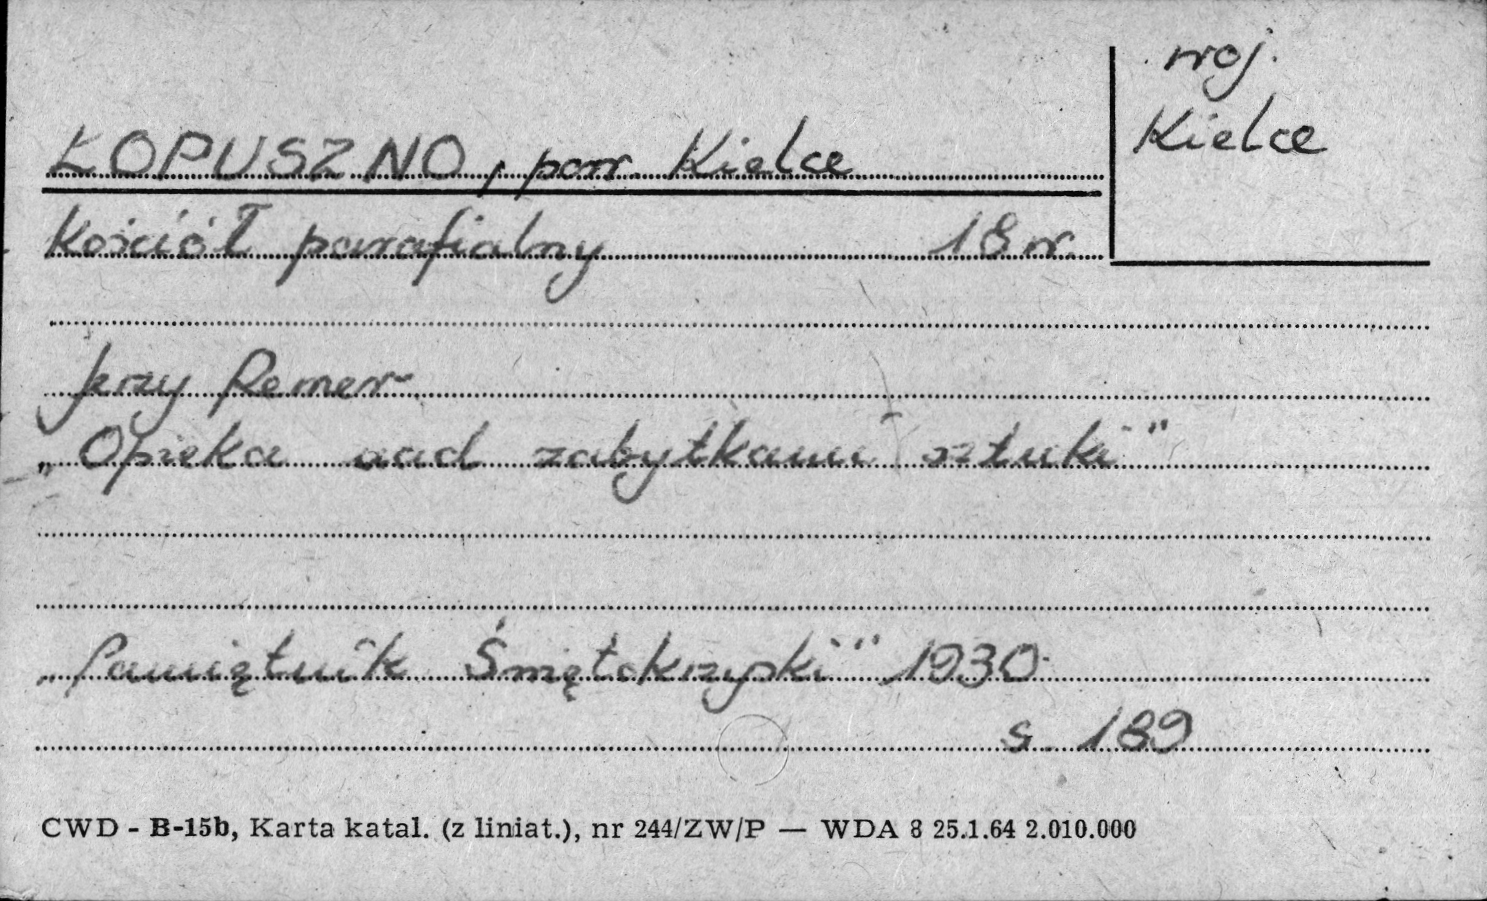 woj.
Kielce
ŁOPUSZNO, pow. Kielce
Kościół parafialny 18 w.
Jerzy Remer
„Opieka nad zabytkami sztuki"
„Pamiętnik Świętokrzyski" 1930
s. 189
CWD - B-15b, Karta katal. (z liniat.), nr 244/ZW/P — WDA 8 25.1.64 2.010.000